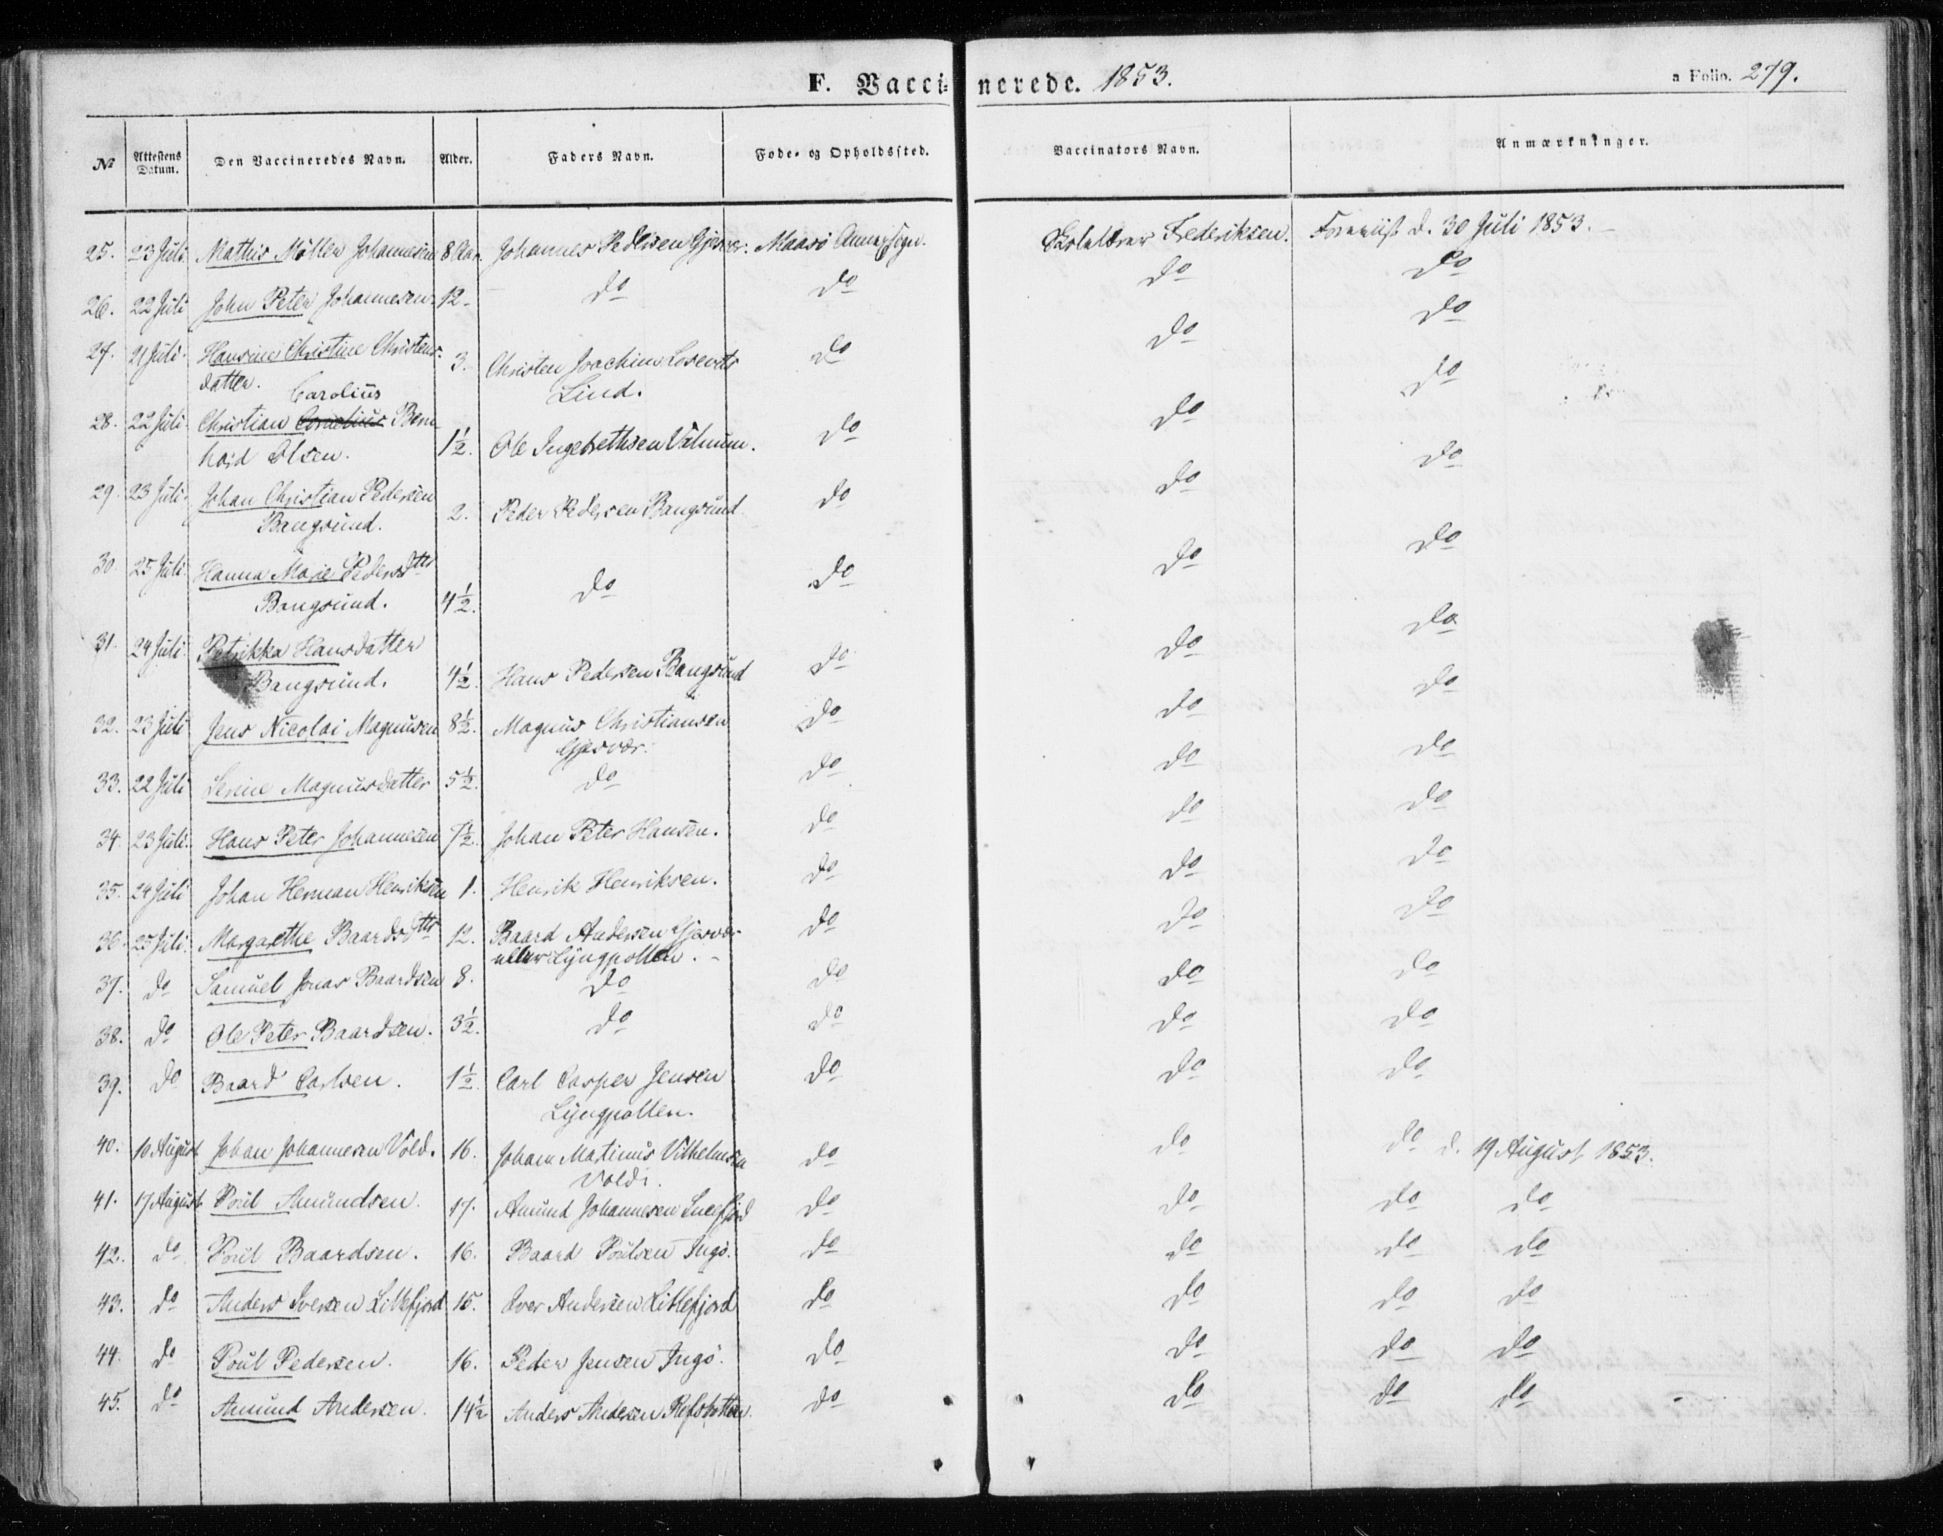 F. Vaccinerede. 1853. a Folio. 279.
No Attestens Datum. Den Vaccineredes Navn. Alder. Faders Navn. Føde- og Opholdssted. Vaccinators Navn. Anmærkninger.
25. 23 Juli Mathis Möller Johannesen 8 Aar. Johannes Pedersen Gjesvær. Maasö Annexsogn. Skolelærer Frederiksen. Foreviist d. 30 Juli 1853.
26. 22 Juli John Peter Johannesen 12. do do do do
27. 21 Juli. Hansine Christine Christens- 3. Christen Joachim do do do
datter. Lind.
Carolius
28. 22 Juli. Christian Cornelius Bern 1½. Ole Ingebrethsen do do do
hard Olsen.
29. 23 Juli. Johan Christian Pedersen 2. Peder Pedersen Bangsund do do do
Bangsund.
30. 25 Juli. Hanna Marie Pedersdtr 4½. do do do do
Bangsund.
31. 24 Juli. Petrikka Hansdatter 4½. Hans Pedersen Bangsund do do do
Bangsund.
32. 23 Juli Jens Nicolai Magnusen 8½. Magnus Christiansen do do do
Gjesvær.
33. 22 Juli Serine Magnusdatter 5½. do do do do
34. 23 Juli. Hans Peter Johannesen 7½. Johan Peter Hansen. do do do
35. 24 Juli Johan Herman Henriksen 1. Henrik Henriksen. do do do
36. 25 Juli. Margarethe Baardsdtr 12. Baard Andersen Gjesvær do do do
eller Lyngpollen.
37. do Samuel Jonas Baardsen 8. do do do do
38. do Ole Peter Baardsen. 3½. do do do do
39. do Baard Carlsen. 1½. Carl Casper Jensen do do do
Lyngpollen.
40. 10 August Johan Johannesen Vold. 16. Johan Martinus Vilhelmsen do do do d. 19 August 1853.
Vold.
41. 17 August Poul Amundsen. 17. Amund Johannesen Snefjord do do do do
42. do Poul Baardsen. 16. Baard Poulsen Ingö. do do do do
43. do Anders Iversen Lillefjord 15. Iver Andersen Lillefjord do do do do
44. do Poul Pedersen. 16. Peder Jensen Ingö. do do do do
45. do Amund Andersen. 14½ Anders Andersen Refsbotten. do do do do